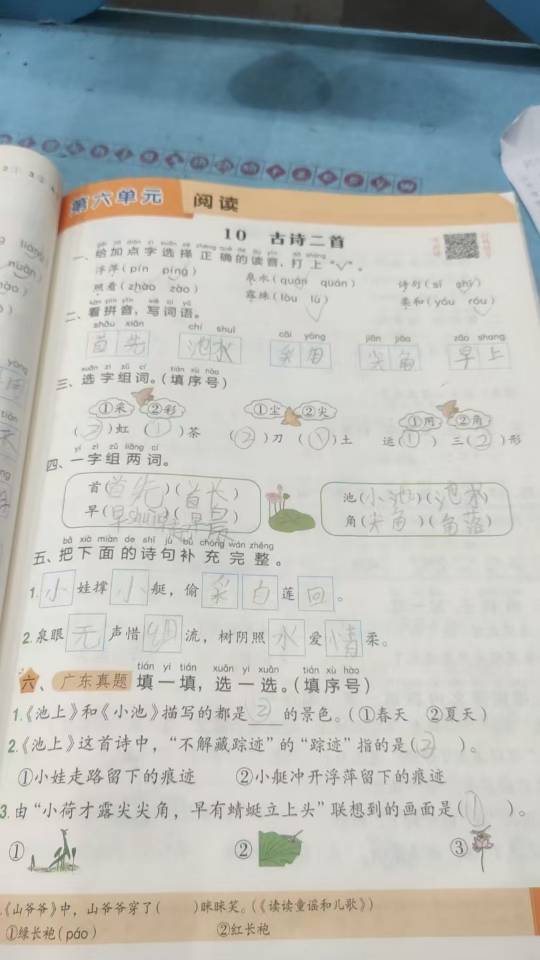 第六单元 阅读
10 古诗二首
一、给加点字选择正确的读音，打上“√”。
浮萍(pín píng) 泉水(quán quán) 诗句(sī shī)
照看(zhào zào) 露珠(lòu lù) 柔和(yóu róu)
二、看拼音，写词语。
shǒu xiān chí shuǐ cǎi yòng jiān jiǎo zǎo shang
首先 池水 采用 尖角 早上
xuǎn zì zǔ cí tián xù hào
三、选字组词。(填序号)
①采 ②彩 ①尘 ②尖 ①用 ②角
(2)虹 (1)茶 (2)刀 (1)土 运(1) 三(2)形
yí zì zǔ liǎng cí
四、一字组两词。
首(首先)(首长) 池(小池)(池水)
早()(早晨) 角(尖角)(角落)
bǎ xià miàn de shī jù bǔ chōng wán zhěng
五、把下面的诗句补充完整。
1.小娃撑小艇，偷采白莲回。
2.泉眼无声惜细流，树阴照水爱晴柔。
tián yi tián xuǎn yi xuǎn tián xù hào
六、广东真题 填一填，选一选。(填序号)
1.《池上》和《小池》描写的都是2的景色。(①春天 ②夏天)
2.《池上》这首诗中，“不解藏踪迹”的“踪迹”指的是(2)。
①小娃走路留下的痕迹 ②小艇冲开浮萍留下的痕迹
3.由“小荷才露尖尖角，早有蜻蜓立上头”联想到的画面是(1)。
① ② ③
《山爷爷》中，山爷爷穿了( )眯眯笑。(《读读童谣和儿歌》)
①绿长袍(páo) ②红长袍